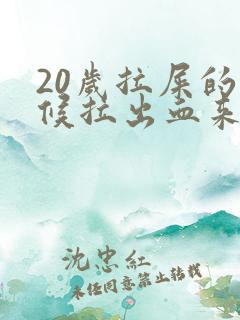 20岁拉屎的
候拉出血来
沈忠红
未经同意禁止转载